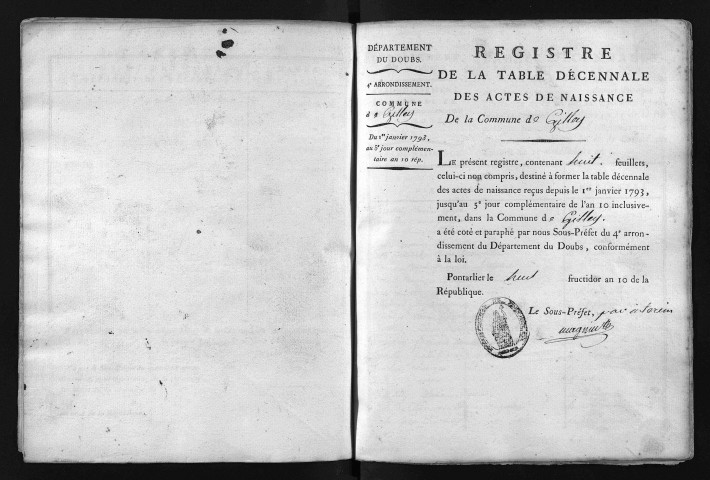 DÉPARTEMENT
DU DOUBS.
4e ARRONDISSEMENT.
COMMUNE
de Gilley
Du 1er janvier 1793,
au 5e jour complémen-
taire an 10 rép.
REGISTRE
DE LA TABLE DÉCENNALE
DES ACTES DE NAISSANCE
De la Commune de Gilley
LE présent registre, contenant huit feuillets,
celui-ci non compris, destiné à former la table décennale
des actes de naissance reçus depuis le 1er janvier 1793,
jusqu'au 5e jour complémentaire de l'an 10 inclusive-
ment, dans la Commune de Gilley.
a été coté et paraphé par nous Sous-Préfet du 4e arron-
dissement du Département du Doubs, conformément
à la loi.
Pontarlier le huit fructidor an 10 de la
République.
Le Sous-Préfet, par interim